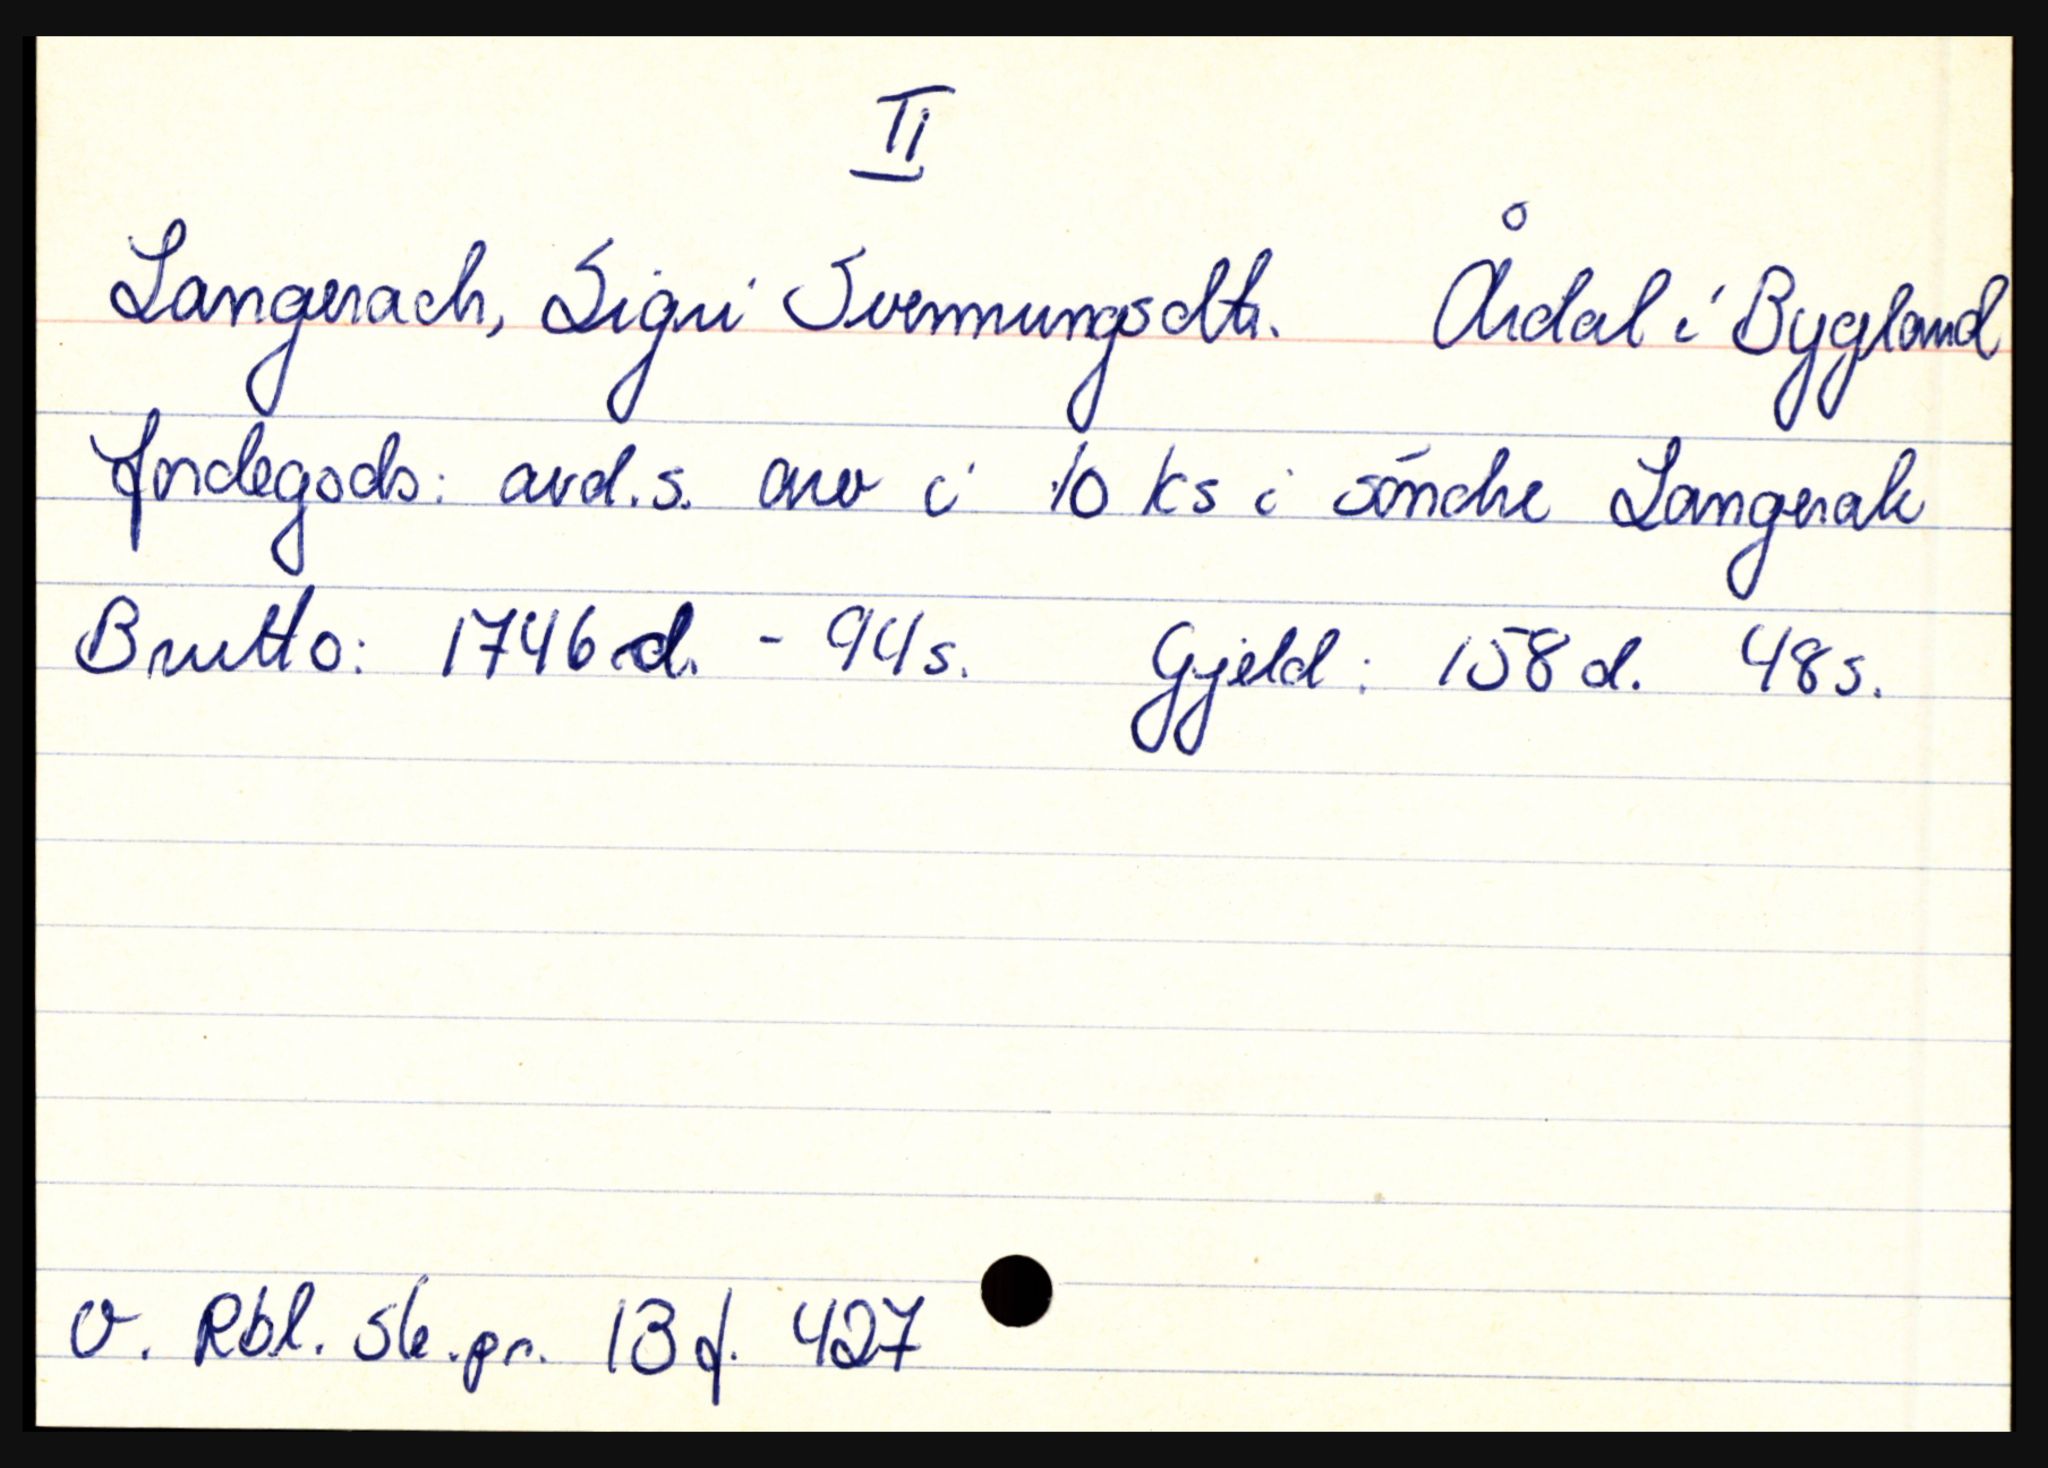 II
Langerach, Sigri Svennungsdtr. Årdal i Bygland
Jordegods: avd.s. arv i 10 ks i söndre Langerak
Brutto: 1746 d. - 94 s. Gjeld: 158 d. 48 s.
v. Rbl. sk.pr. 13 f. 427